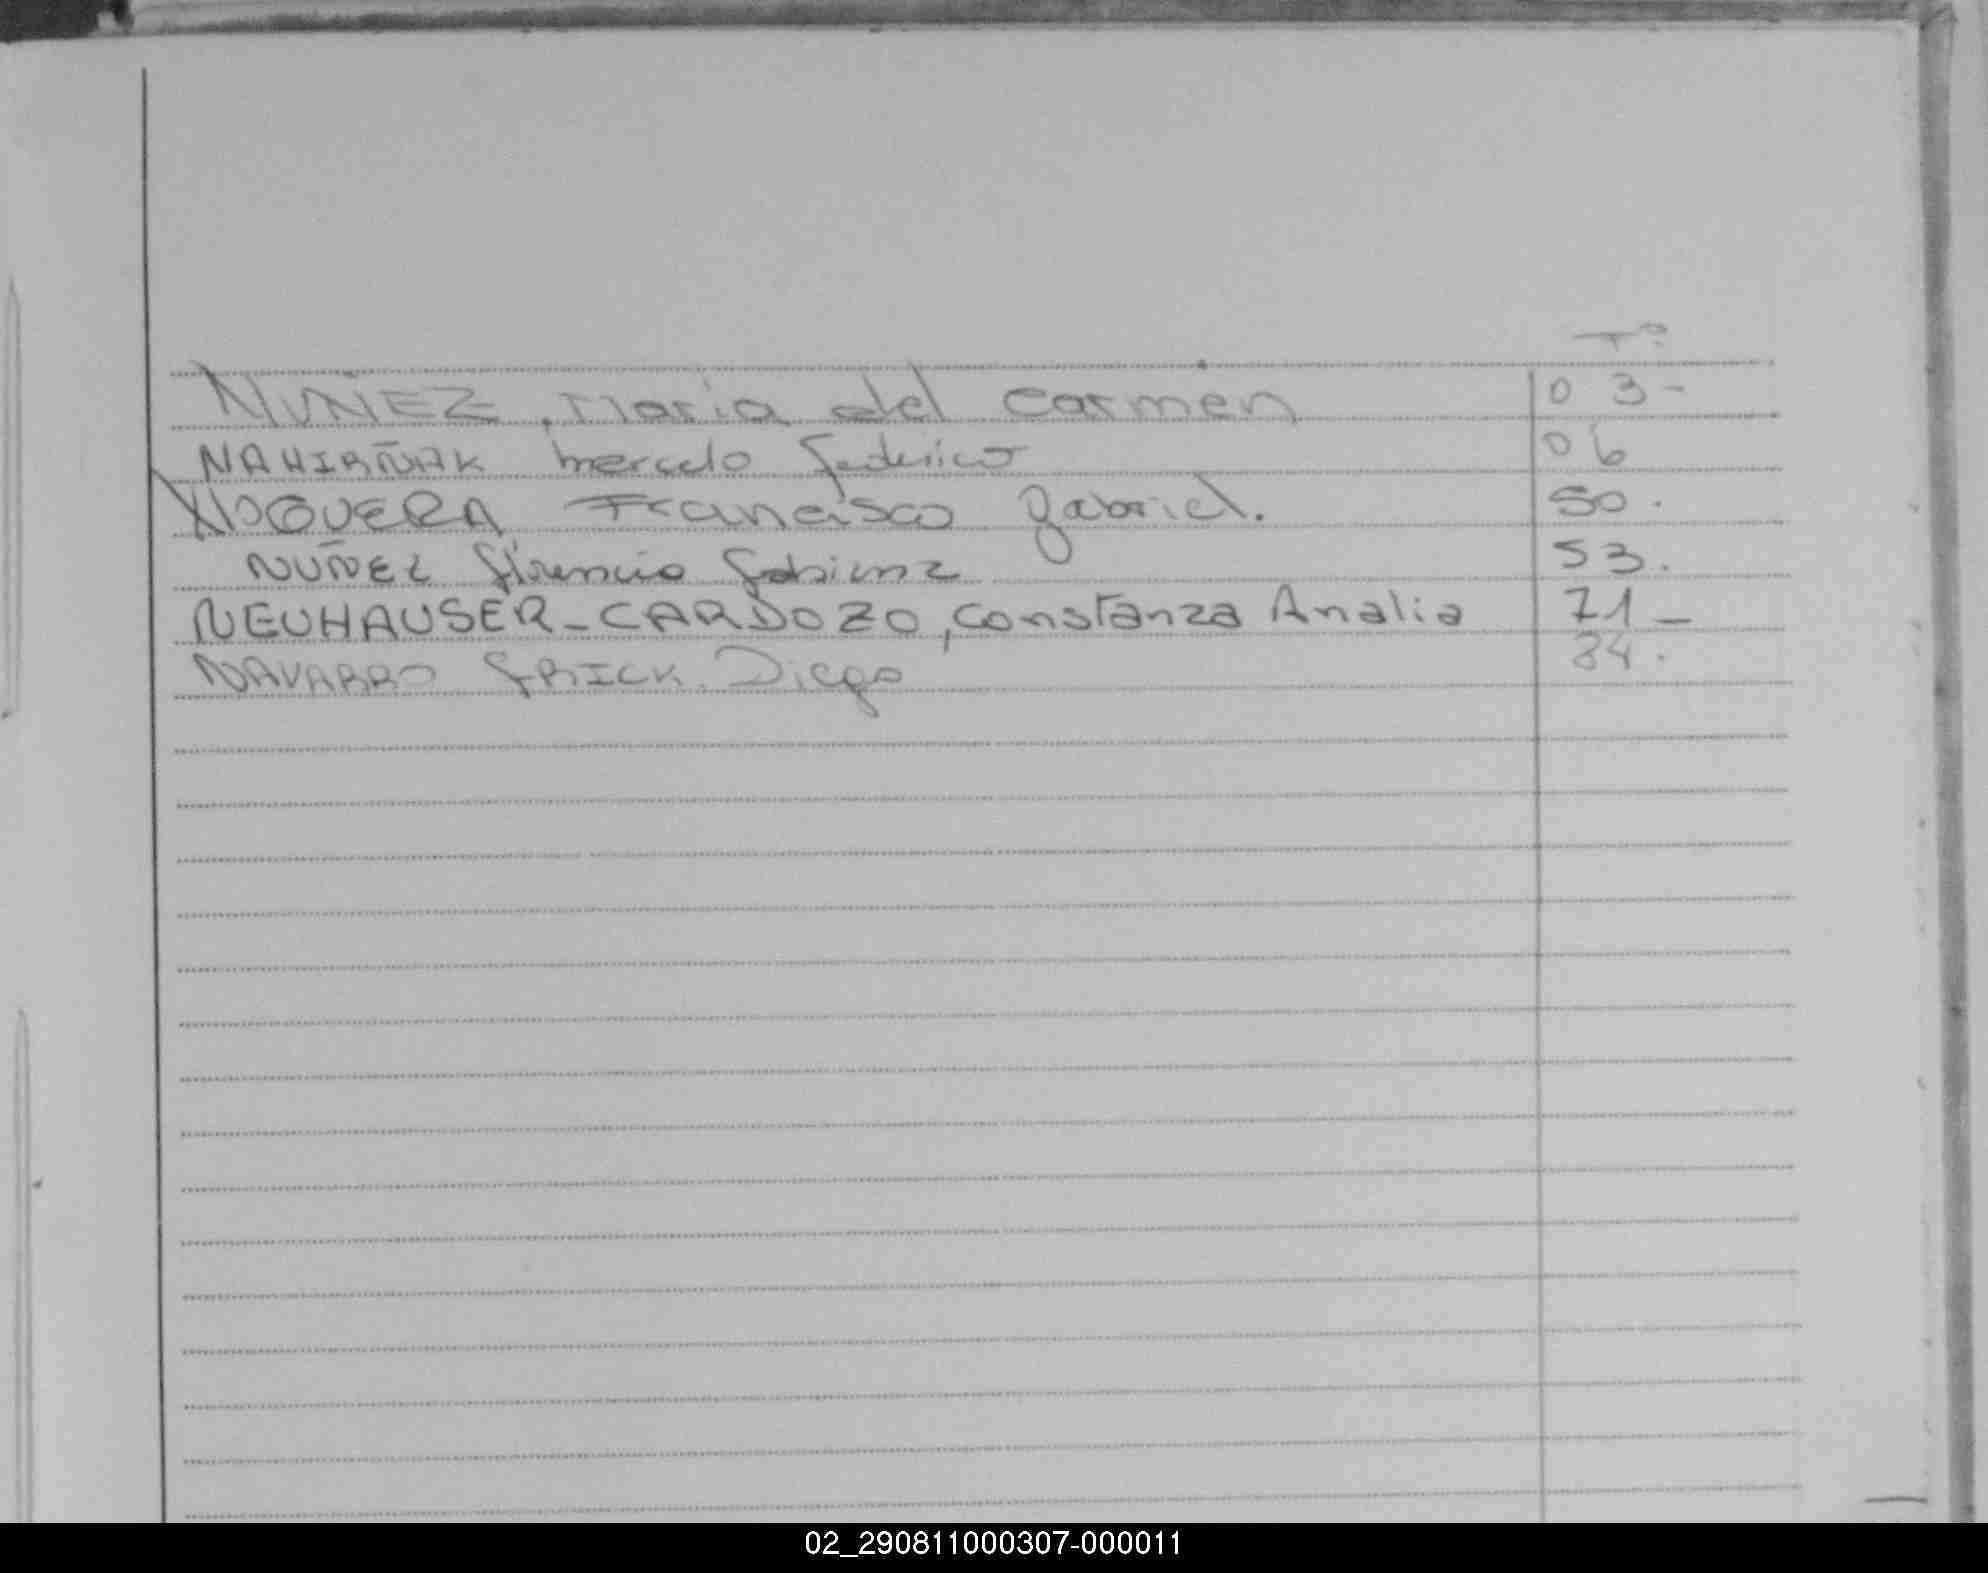 Tº
NUÑEZ, Maria del Carmen 03-
NAHIRÑAK Marcelo Federico 06
NOGUERA Francisco Gabriel. 50.
NUÑEZ Florencia Fabiana 53.
NEUHAUSER-CARDOZO, Constanza Analia 71-
NAVARRO FRICK. Diego 84.
02_290811000307-000011